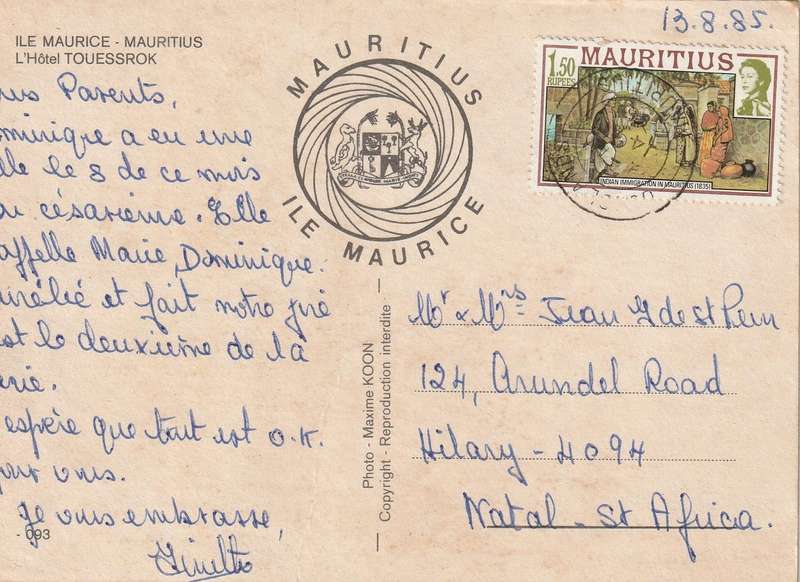 13.8.85.
ILE MAURICE - MAURITIUS
L'Hôtel TOUESSROK
MAURITIUS
ILE MAURICE
1.50
RUPEES
MAURITIUS
INDIAN IMMIGRATION IN MAURITIUS (1835)
Parents,
a eu une
le 8 de ce mois
césarienne. Elle
Marie Dominique.
et fait notre
le deuxième de la
espère que tout est O.K.
vous.
Je vous embrasse,
- 093
Photo - Maxime KOON
Copyright - Reproduction interdite
Mr & Mrs Jean
124, Arundel Road
Hilary - 4094
Natal - St Africa.